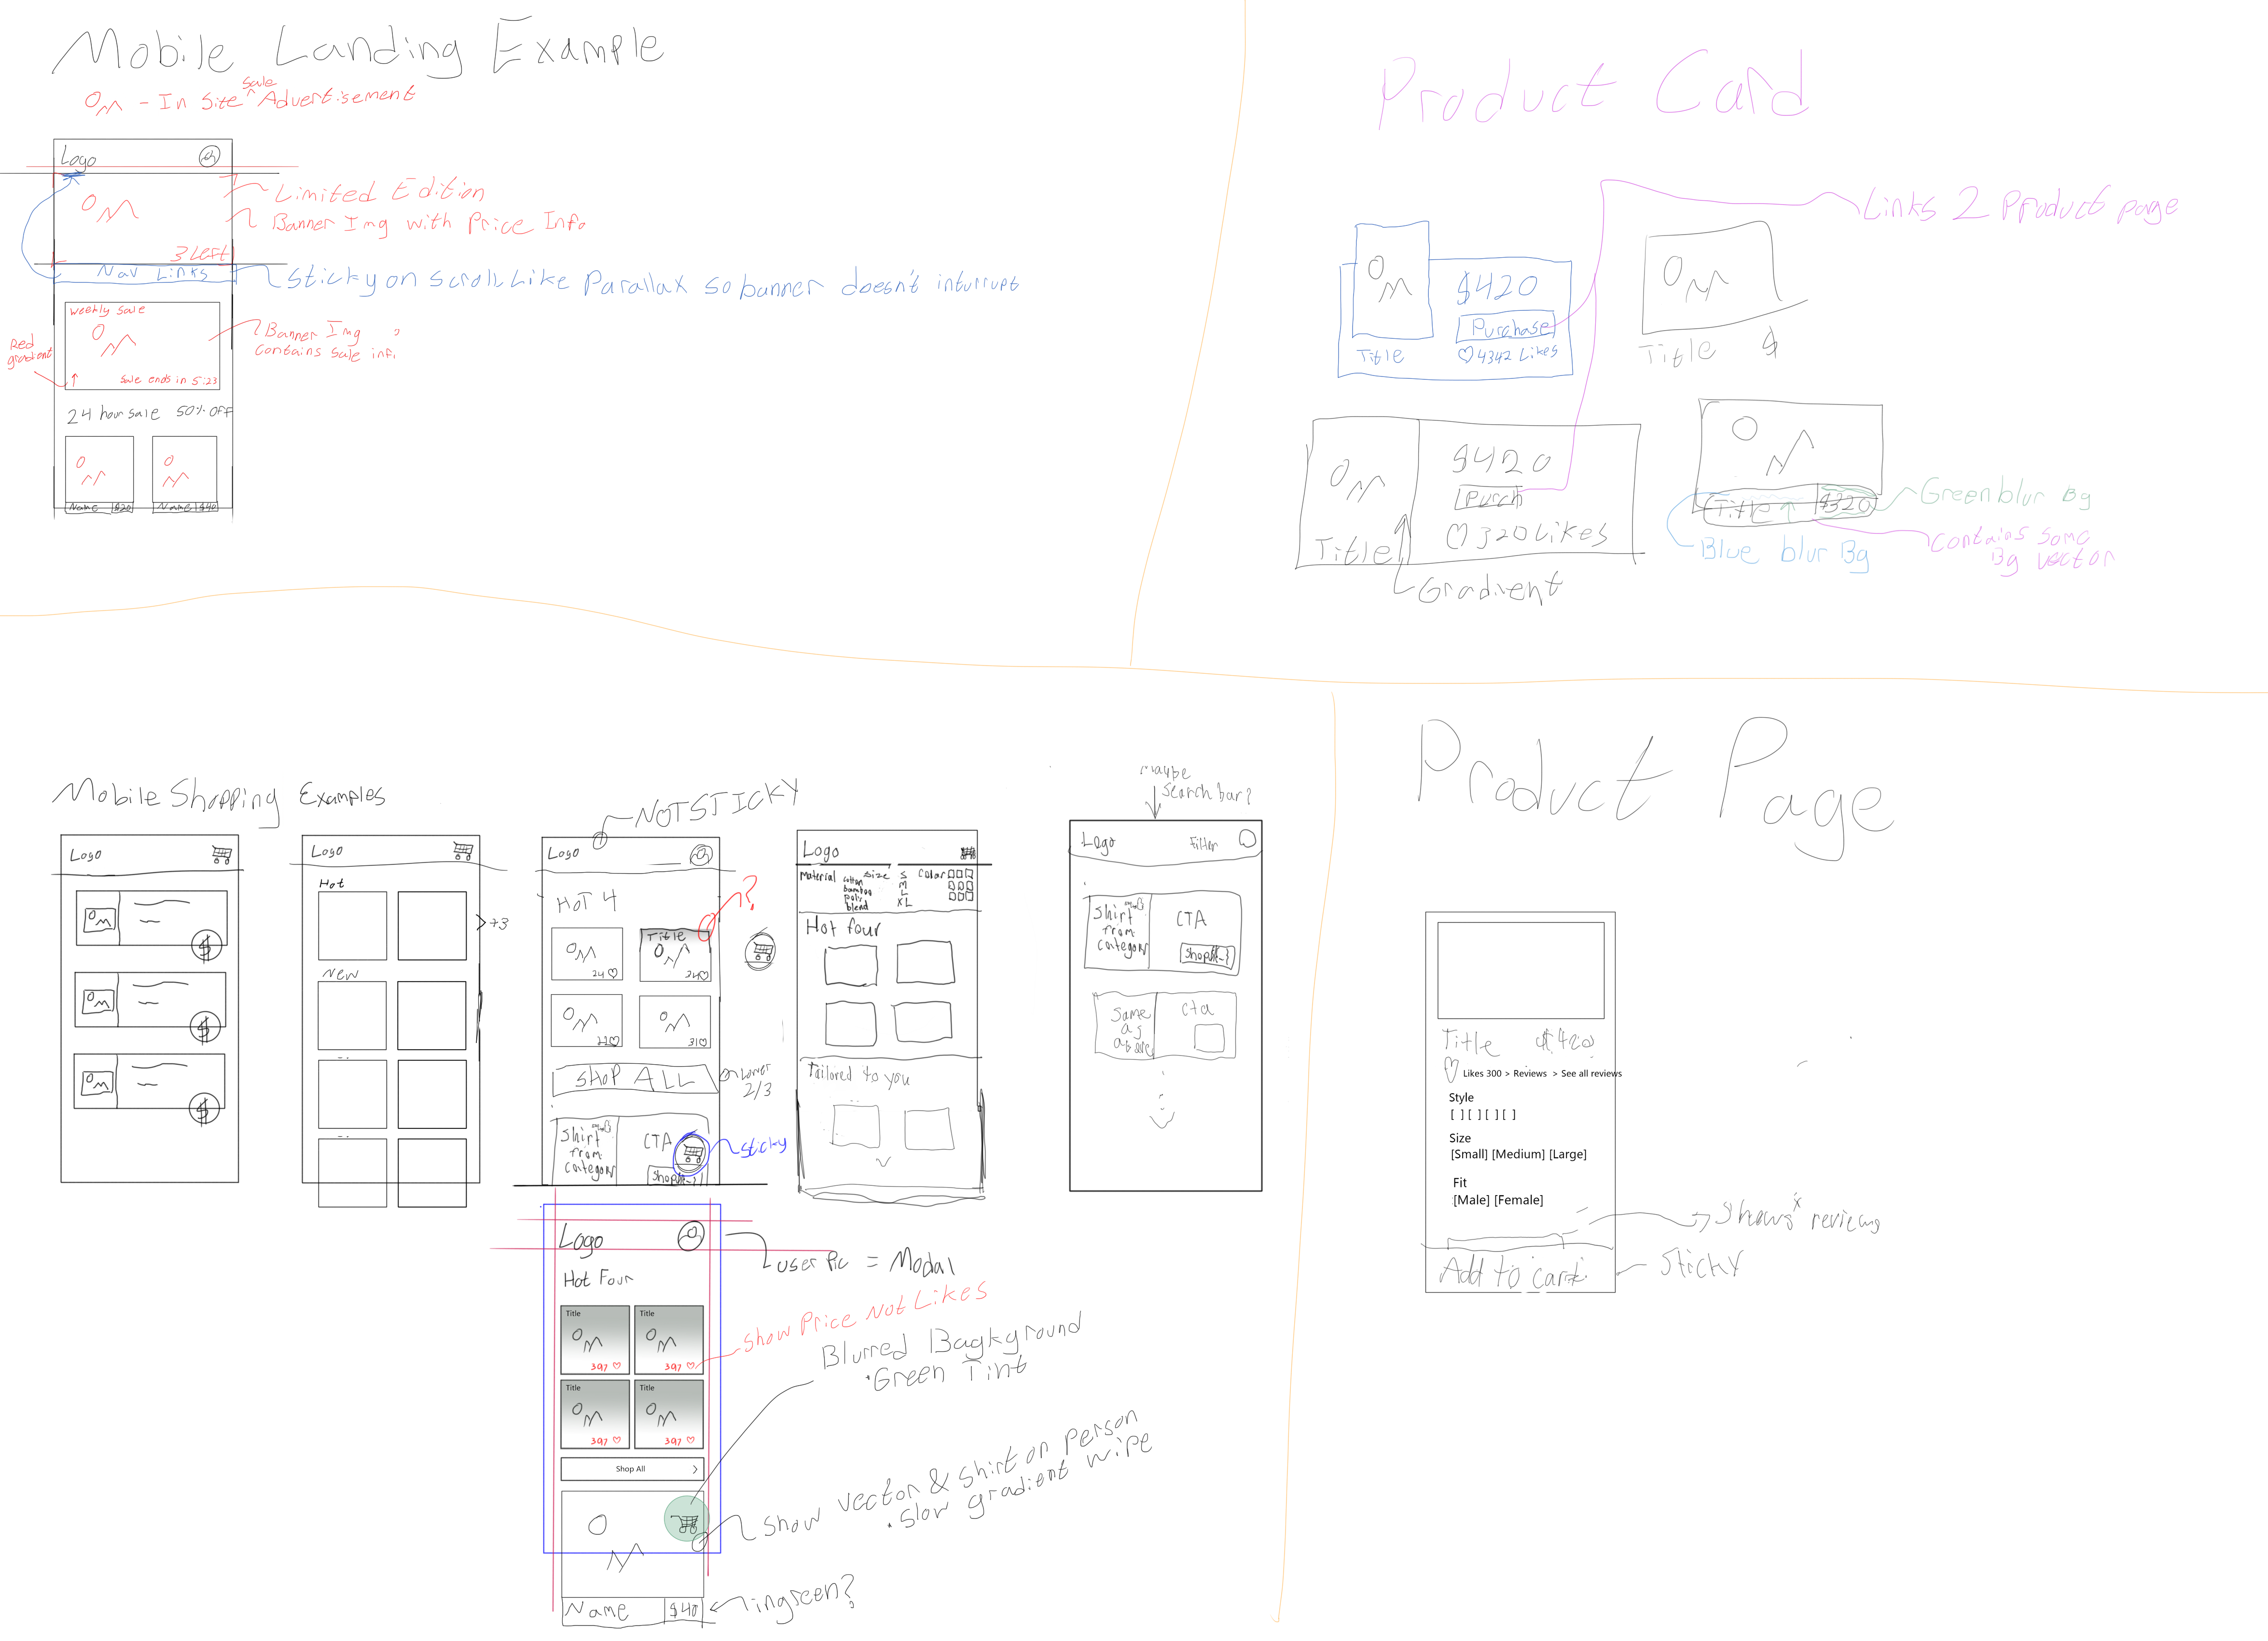 Mobile Landing Example
- In Site Sale Advertisement
Logo
Limited Edition
Banner Img with Price Info
3 Left
Nav Links
Sticky on scroll Like Parallax so banner doesn't inturrupt
Weekly Sale
Banner Img
contains sale info
Red
gradient
Sale ends in 5:23
24 hour sale 50% OFF
Name $20
Name $40
Product Card
Links 2 Product page
$420
Purchase
Title
4342 Likes
Title $
$420
Purch
Title
320 Likes
Gradient
Title $320
Green blur Bg
Blue blur Bg
contains some
Bg vector
Mobile Shopping Examples
Logo
Logo
Hot
+3
New
NOT STICKY
Logo
HOT 4
?
Title
24
24
22
31
SHOP ALL
Lower
2/3
Shirt
from
category
CTA
Sticky
Logo
Material
cotton
bamboo
poly
blend
Size
S
M
L
XL
Color
Hot four
Tailored to you
Maybe
Search bar?
Logo Filter
Shirt
from
category
CTA
Same
as
above
cta
Logo
User Pic = Modal
Hot Four
Title
Title
397
397
Title
Title
397
397
Show Price Not Likes
Blurred Bagkground
Green Tint
Shop All >
Show vector & shirt on person
slow gradient wipe
Name $40
in green?
Product Page
Title $420
Likes 300 > Reviews > See all reviews
Style
[ ] [ ] [ ] [ ]
Size
[Small] [Medium] [Large]
Fit
[Male] [Female]
Shows reviews
Add to cart
Sticky